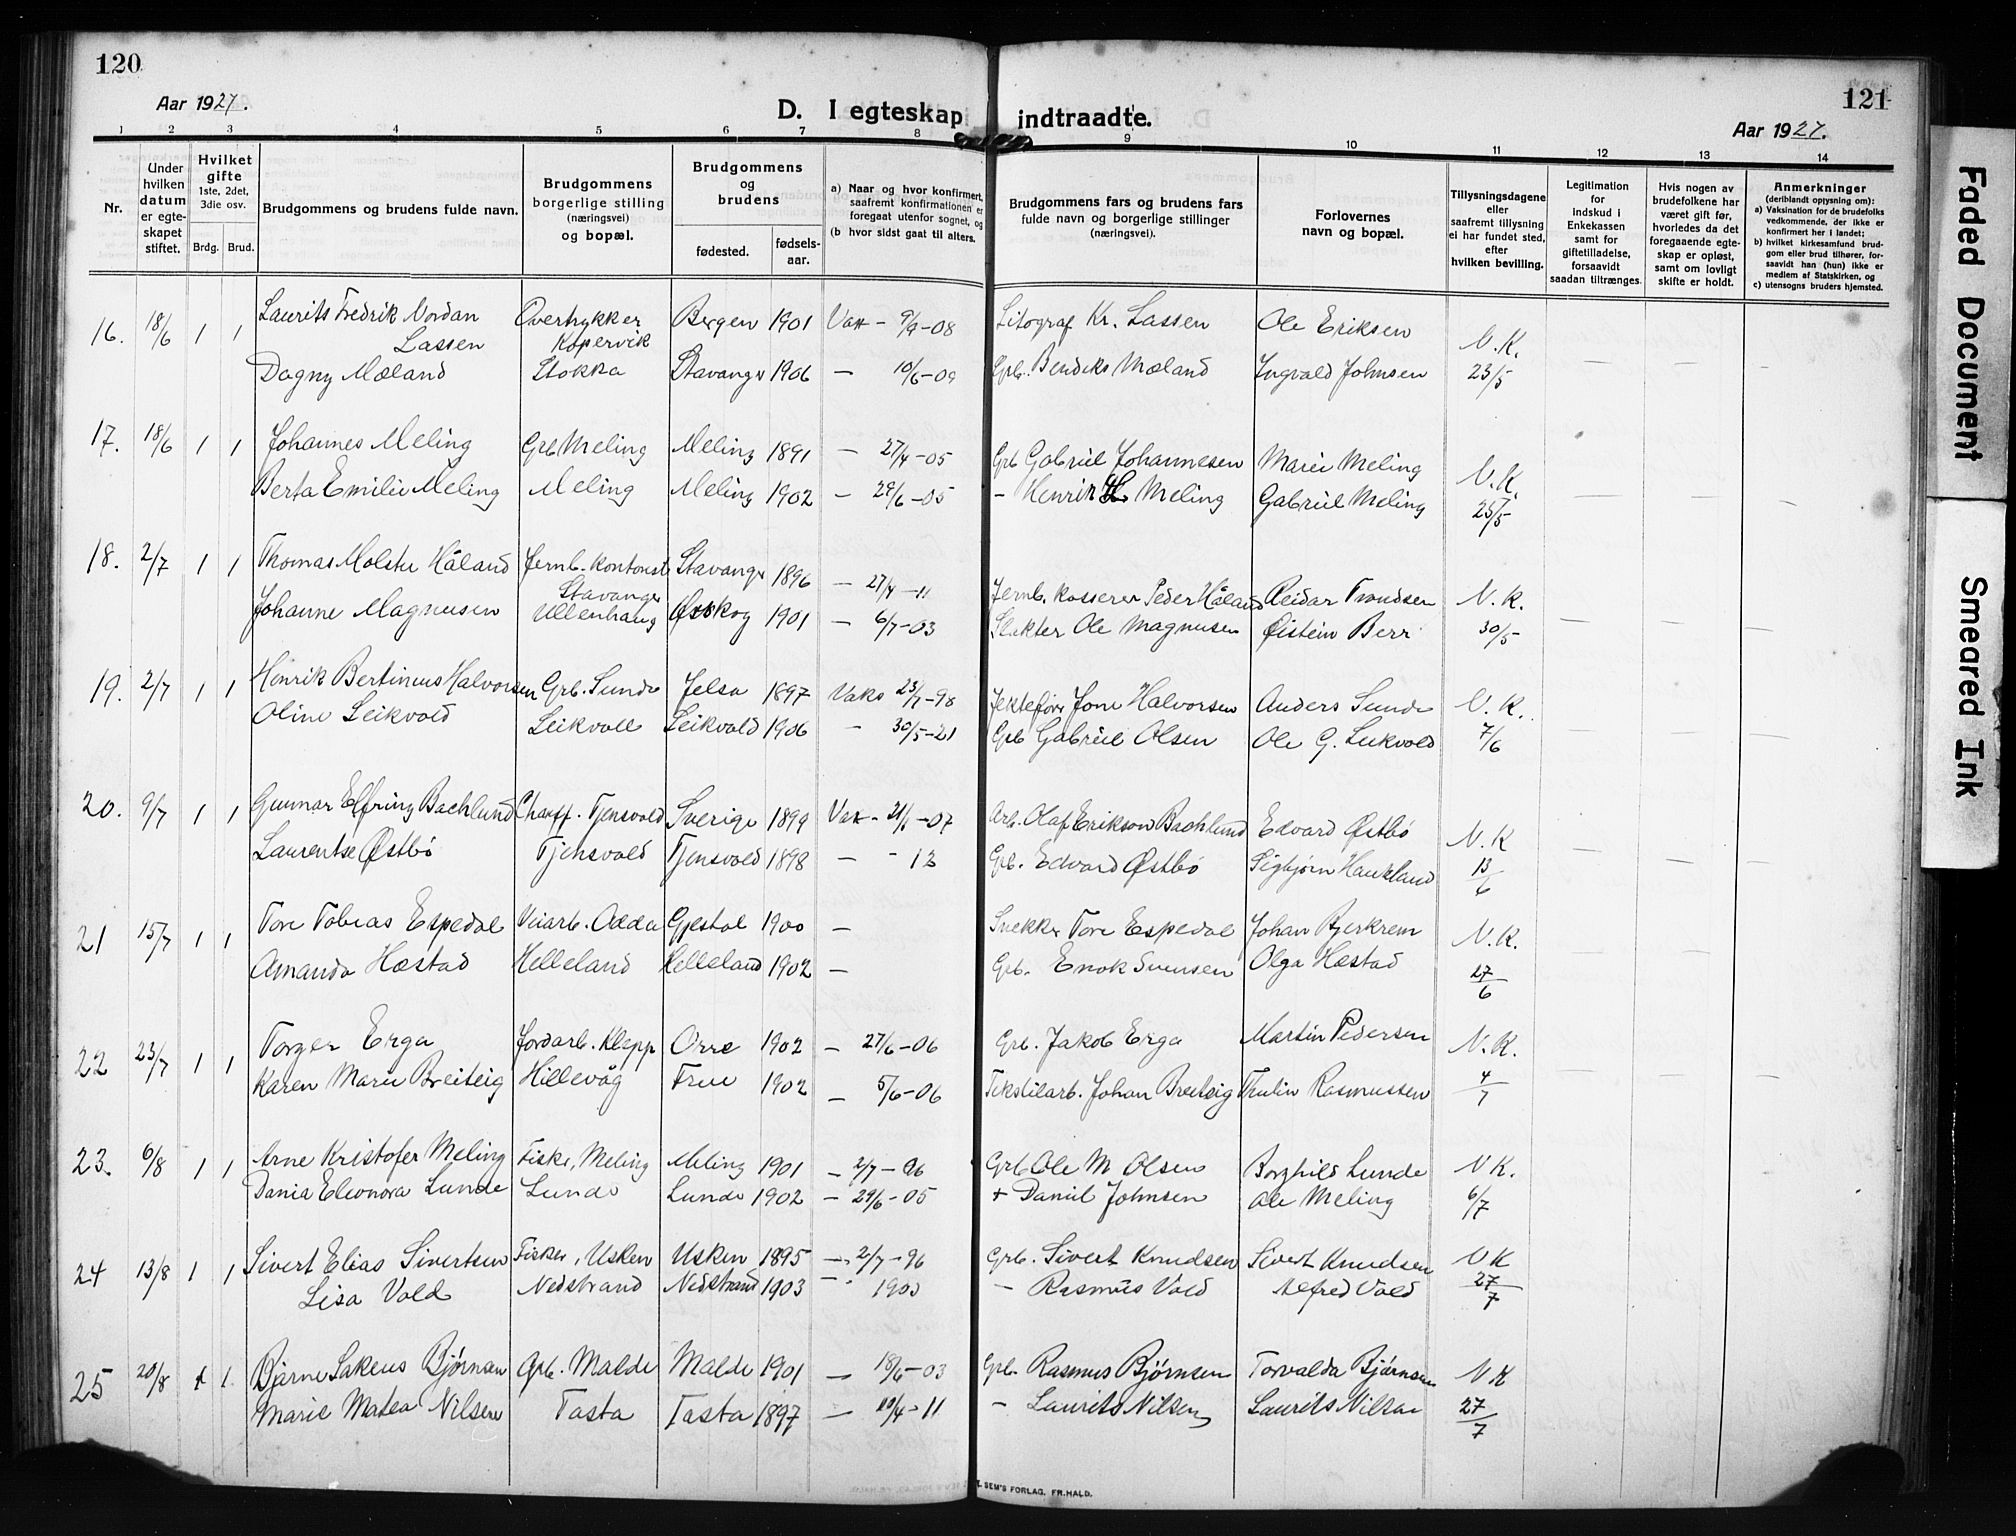 120
121
Aar 1927.
D. I egteskap indtraadte.
Aar 1927.
1 2 3 4 5 6 7 8 9 10 11 12 13 14
Nr.
Under hvilken datum er egteskapet stiftet.
Hvilket gifte
1ste, 2det, 3die osv.
Brdg. Brud.
Brudgommens og brudens fulde navn.
Brudgommens borgerlige stilling (næringsvei) og bopæl.
Brudgommens og brudens
fødested. fødselsaar.
a) Naar og hvor konfirmert, saafremt konfirmationen er foregaat utenfor sognet, og
(b hvor sidst gaat til alters.
Brudgommens fars og brudens fars fulde navn og borgerlige stillinger (næringsvei).
Forlovernes navn og bopæl.
Tillysningsdagene eller saafremt tillysning ei har fundet sted, efter hvilken bevilling.
Legitimation for indskud i Enkekassen samt for giftetilladelse, forsaavidt saadan tiltrænges.
Hvis nogen av brudefolkene har været gift før, hvorledes da det foregaaende egteskap er opløst, samt om lovligt skifte er holdt.
Anmerkninger
(deriblandt opysning om):
a) Vaksination for de brudefolks vedkommende, der ikke er konfirmert her i landet;
b) hvilket kirkesamfund brudgom eller brud tilhører, forsaavidt han (hun) ikke er medlem af Statskirken, og
c) utensogns bruders hjemsted.
16. 18/6 1 1 Laurits Fredrik Nordan Lassen Overtrykker Kopervik Bergen 1901 Vak - 9/9-08 Litograf Kr. Lassen Ole Eriksen N.K.
Dagny Mæland Stokka Stavanger 1906 — 10/6-09 Grb. Bendiks Mæland Ingvald Johnsen 23/5
17. 18/6 1 1 Johannes Meling Grb Meling Meling 1891 — 27/4-05 Grb Gabriel Johannesen Marie Meling N.K.
Berta Emilie Meling Meling Meling 1902 — 29/6-05 - Henrik H. Meling Gabriel Meling 25/5
18. 2/7 1 1 Thomas Molste Håland Jernb. kontorist Stavanger Stavanger 1896 — 27/4-11 Jernb. kasserer Peder Håland Reidar Trondsen N.K.
Johanne Magnusen Ullenhaug Ørskog 1901 — 6/7-03 Slakter Ole Magnusen Øistein Berr 30/5
19. 2/7 1 1 Henrik Bertinius Halvorsen Grb. Sunde Jelsa 1897 Vaks 23/7-98 Jektefører Jone Halvorsen Anders Sunde N.K.
Oline Leikvold Leikvoll Leikvold 1906 — 30/5-21 Grb Gabriel Olsen Ole G. Leikvold 7/6
20. 9/7 1 1 Gunnar Elfring Bachlund Chauff. Tjensvold Sverige 1899 Vak - 21/6-07 Arb. Olaf Erikson Bachlund Edvard Østbø N.K
Laurentse Østbø Tjensvold Tjensvold 1898 — - 12 Grb. Edvard Østbø Sigbjørn Haukland 13/6
21 15/7 1 1 Tore Tobias Espedal Veiarb. Odda Gjestal 1900 — Snekker Tore Espedal Johan Bjerkrem N.K.
Amanda Hæstad Helleland Helleland 1902 — Grb. Enok Svensen Olga Hæstad 27/6
22 23/7 1 1 Torger Erga Jordarb. Klepp Orre 1902 — 27/6-06 Grb. Jakob Erga Martin Pedersen N.K.
Karen Marie Breiteig Hillevåg Frue 1902 — 5/6-06 Tekstilarb. Johan Breiteig Thulin Rasmussen 4/7
23. 6/8 1 1 Arne Kristofer Meling Fisker, Meling Meling 1901 — 2/7-06 Grb Ole M Olsen Borghild Lunde N K.
Dania Eleonora Lunde Lunde Lunde 1902 — 29/6-05 + Daniel Johnsen Ole Meling 6/7
24 13/8 1 1 Sivert Elias Sivertsen Fisker, Usken Usken 1895 — 2/7-96 Grb. Sivert Knudsen Sivert Knudsen N K
Lisa Vold Nedstrand Nedstrand 1903 — 1903 — Rasmus Vold Alfred Vold 27/7
25 20/8 1 1 Bjarne Sakeus Bjørnsen Grb. Malde Malde 1901 — 18/6-03 Grb. Rasmus Bjørnsen Torvalda Bjørnsen N K
Marie Matea Nilsen Tasta Tasta 1897 — 10/4-11 — Laurits Nilsen Laurits Nilsen 27/7
SEM'S FORLAG. FR.HALD.
Faded Document
Smeared Ink